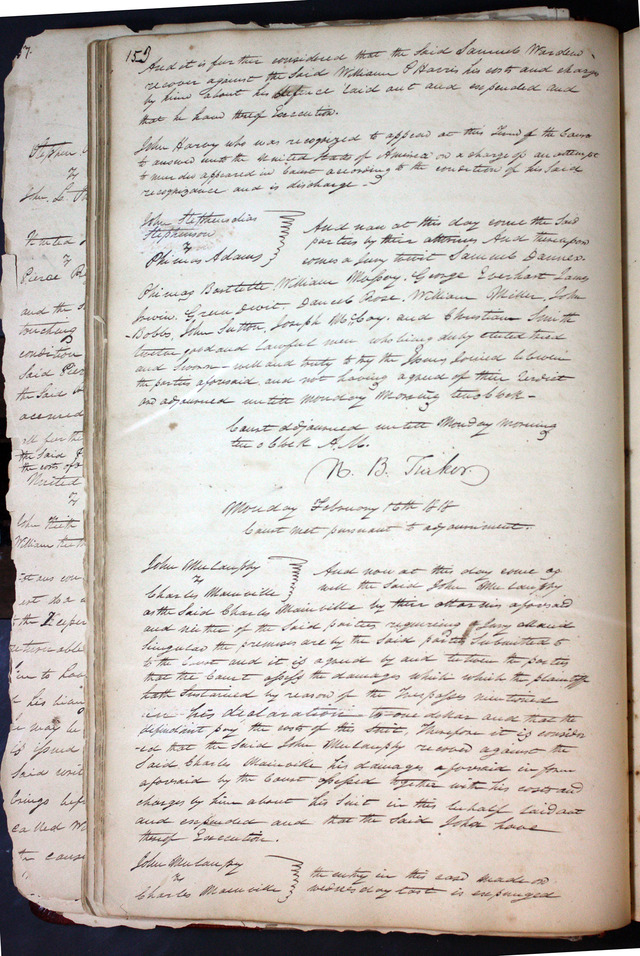 152
And it is further considered that the said Samuel Warden
recover against the said William P Harris his costs and charges
by him about his defence laid out and expended and
that he have thereof Execution.
John Harvy who was recognized to appear at this Term of the Court
to answer unto the United States of America on a charge of an attempt
to murder appeared in Court according to the condition of his said
recognizance and is discharge.
John Stephens alias
Stephenson
vs
Phineas Adams
And now at this day come the said
parties by their attornies And thereupon
comes a jury to wit Samuel
Phineas Bartlette William Massey. George Everhart James
Irwin. Green Dewit, Daniel Rose. William Miller, John
Bobbs, John Sutton, Joseph McCoy, and Christian Smith
twelve good and lawful men who being duly elected tried
and sworn well and truly to try the Issues Joined between
the parties aforesaid, and not having agreed of their verdict
are adjourned untill Monday Morning ten oClock -
Court adjourned untill Monday morning
ten oClock A.M.
N. B. Tucker
Monday February 16th 1818
Court met pursuant to adjournment.
John Mulauphy
vs
Charles Mainville
And now at this day come as
well the said John Mulauphy
as the said Charles Mainville by their attornis aforesaid
and neither of the said parties requiring a Jury all and
singular the premises are by the said parties submitted to
to the Court and it is agreed by and between the parties
that the Court assess the damages which which the plaintiff
hath sustained by reason of the Trespasses mentioned
in his declaration to one dollar and that the
defendant pay the costs of this suit, Therefore it is consider
-ed that the said John Mulauphy recover against the
said Charles Mainville his damages aforesaid in form
aforesaid by the Court assessed together with his costs and
charges by him about his suit in this behalf laid out
and expended and that the said John have
thereof Execution.
John Mulauphy
vs
Charles Mainville
the entry in this case made on
wednesday last is expunged